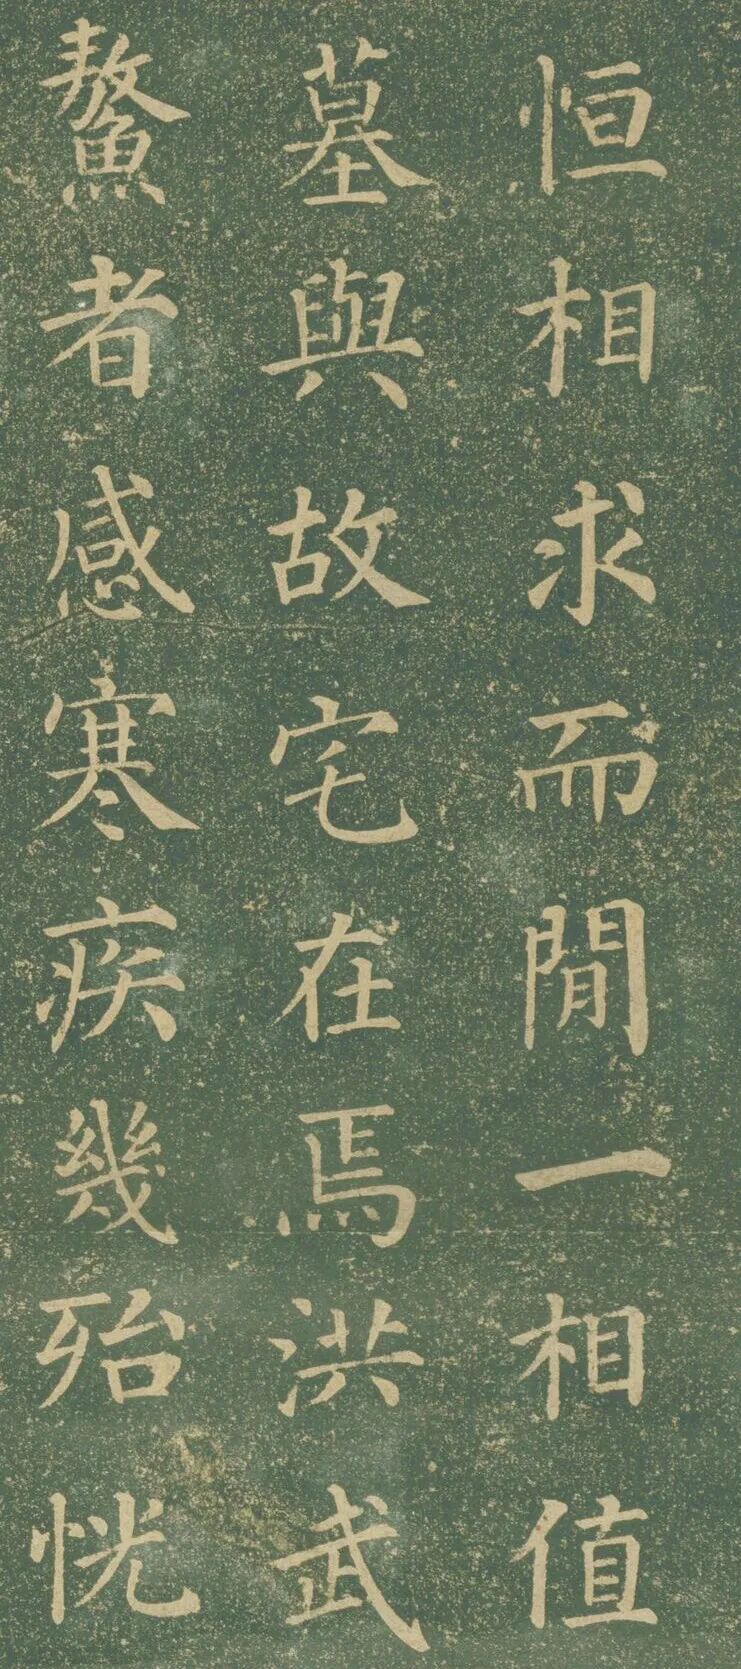 恒相求而閒一相值
墓與故宅在焉洪武
鰲者感寒疾幾殆恍